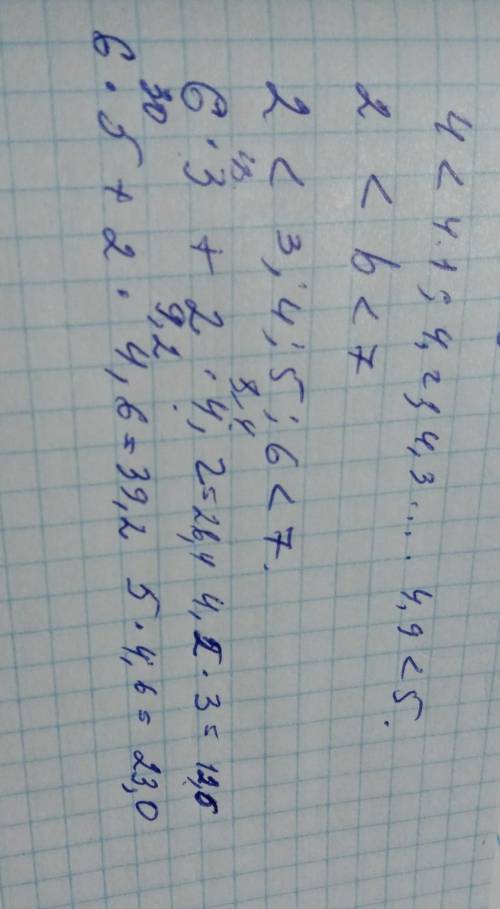 4 < 4.1; 4,2; 4,3.... 4,9 < 5.
2 < b < 7
2 < 3; 4; 5; 6 < 7.
18 8,4
6 · 3 + 2 · 4,2 = 26,4 4,2 · 3 = 12,6
30 9,2
6 · 5 + 2 · 4,6 = 39,2 5 · 4,6 = 23,0